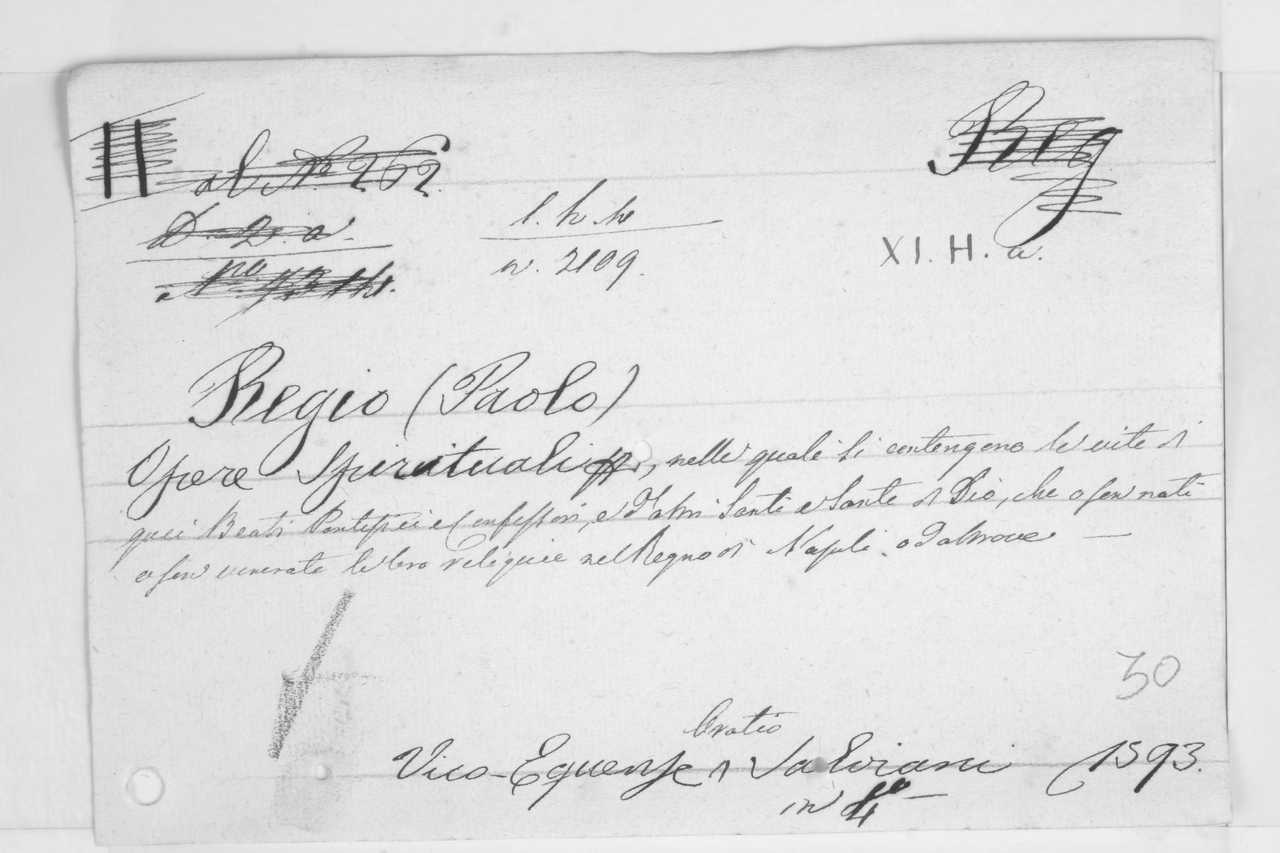 II
al N.º 262
Reg
D. 2. a
l. h. h
n. 2109.
XI. H. a.
Regio (Paolo)
Opere Spirituali, nelle quale si contengono le vite di
quei Beati Pontefici e Confessori, e d'altri Santi e Sante di Dio, che o son nati
o son venerate le loro reliquie nel Regno di Napoli, o d'altrove —
30
Oratio
Vico-Equense ∧ Salviani 1593.
in 4º —